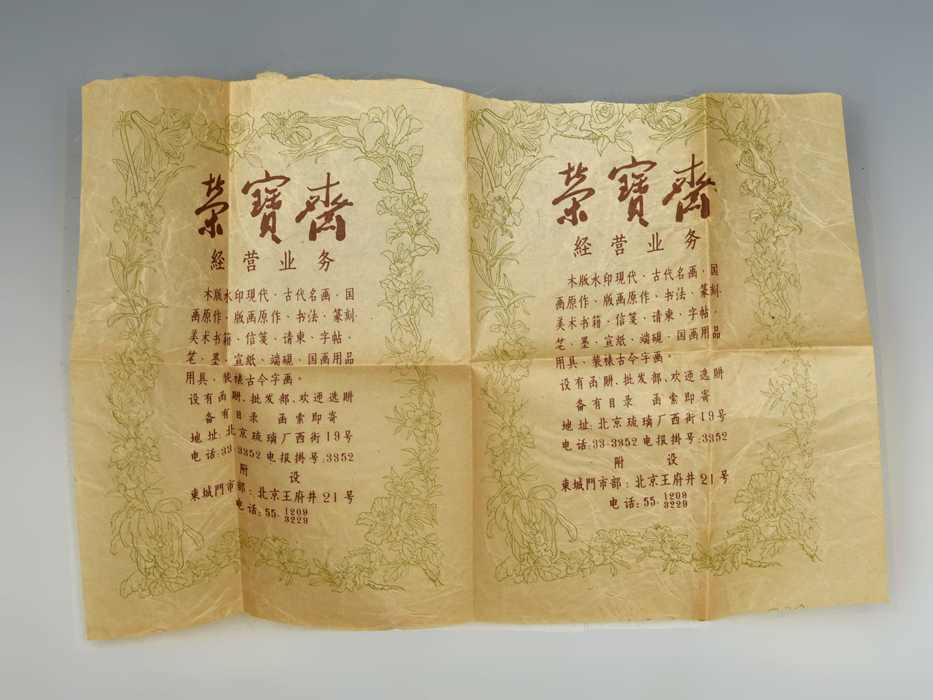 荣寳齋
经营业务
木版水印現代、古代名画、国
画原作、版画原作、书法、篆刻、
美术书籍、信笺、请柬、字帖、
笔、墨、宣纸、端硯、国画用品
用具、装裱古今字画。
设有函購、批发部、欢迎选購
备有目录 函索即寄
地址:北京琉璃厂西街19号
电话:33·3352 电报掛号:3352
附 设
東城門市部:北京王府井21号
电话:55·1209
3229
荣寳齋
经营业务
木版水印現代、古代名画、国
画原作、版画原作、书法、篆刻、
美术书籍、信笺、请柬、字帖、
笔、墨、宣纸、端硯、国画用品
用具、装裱古今字画。
设有函購、批发部、欢迎选購
备有目录 函索即寄
地址:北京琉璃厂西街19号
电话:33·3352 电报掛号:3352
附 设
東城門市部:北京王府井21号
电话:55·1209
3229